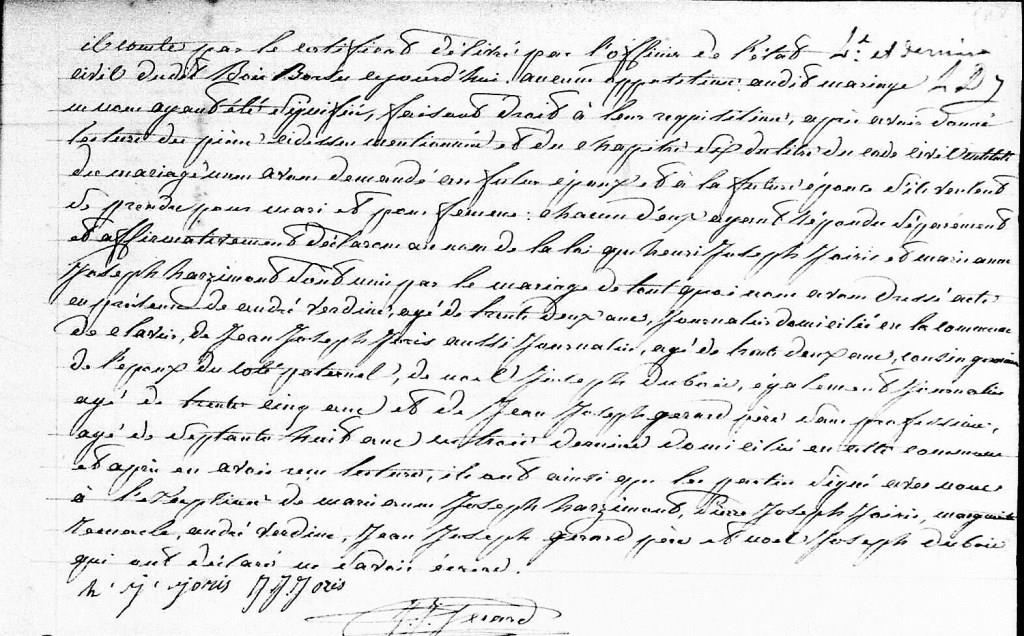 il conste par le certificat délivré par l'officier de l'état L.t et dernier
civil dudit Bois Borsu cejourd'hui aucune opposition audit mariage L D J
ne nous ayant été signifiée, faisant droit à leur requisition, après avoir donné
lecture des pièces cidessus mentionnées et du chapitre six du titre du code civil intitulé
du mariage nous avons demandé au futur époux et à la future épouse s'ils veulent
se prendre pour mari et pour femme : chacun d'eux ayant répondu séparément
et affirmativement déclarons au nom de la loi que henri Joseph Joiris et marie anne
Joseph harzimont sont unis par le mariage de tout quoi nous avons dressé acte
en présence de andré verdin, agé de trente deux ans, Journalier domicilié en la commune
de clavier, de Jean Joseph Joris aussi Journalier, agé de trente deux ans, cousin germain
de l'epoux du coté paternel, de noel Joseph dubois, également Journalier
agé de trente cinq ans et de Jean Joseph gerard père sans profession,
agé de septante huit ans les trois derniers domiciliés en cette commune
et après en avoir reçu lecture, ils ont ainsi que les parties signé avec nous
à l'exeption de marie anne Joseph harzimont, Pierre Joseph Joiris, marguerite
Lemacle, andré verdin, Jean Joseph gerard père et noel Joseph dubois
qui ont déclaré ne savoir écrire.
h. j. joris JJ Joris
J. J. Gerard